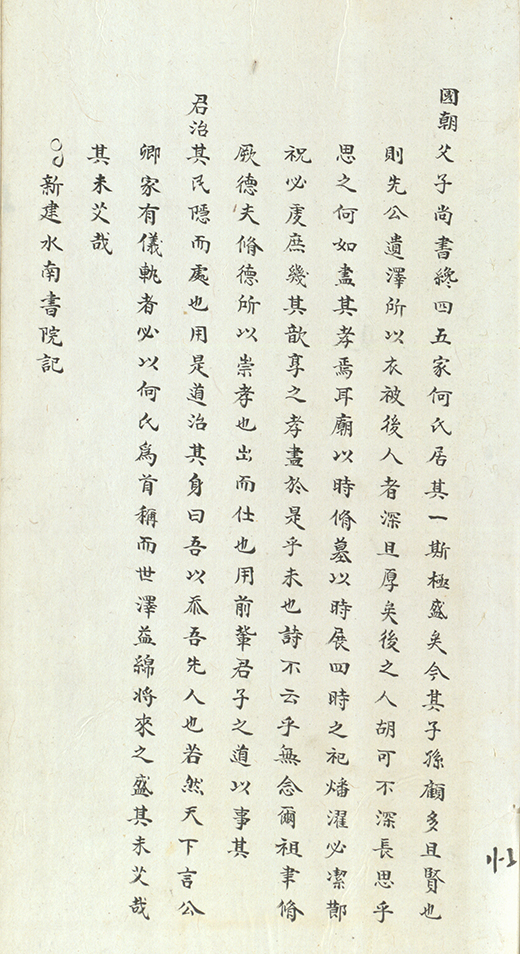 國朝父子尚書纔四五家何氏居其一斯極盛矣今其子孫顧多且賢也
則先公遺澤所以衣被後人者深且厚矣後之人胡可不深長思乎
思之何如盡其孝焉耳廟以時脩墓以時展四時之祀燔濯必潔鄼
祝必虔庶幾其歆享之孝盡於是乎未也詩不云乎無念爾祖聿脩
厥德夫脩德所以崇孝也出而仕也用前輩君子之道以事其
君治其民隱而處也用是道治其身曰吾以忝吾先人也若然天下言公
卿家有儀軌者必以何氏爲首稱而世澤益綿將來之盛其未艾哉
其未艾哉
新建水南書院記